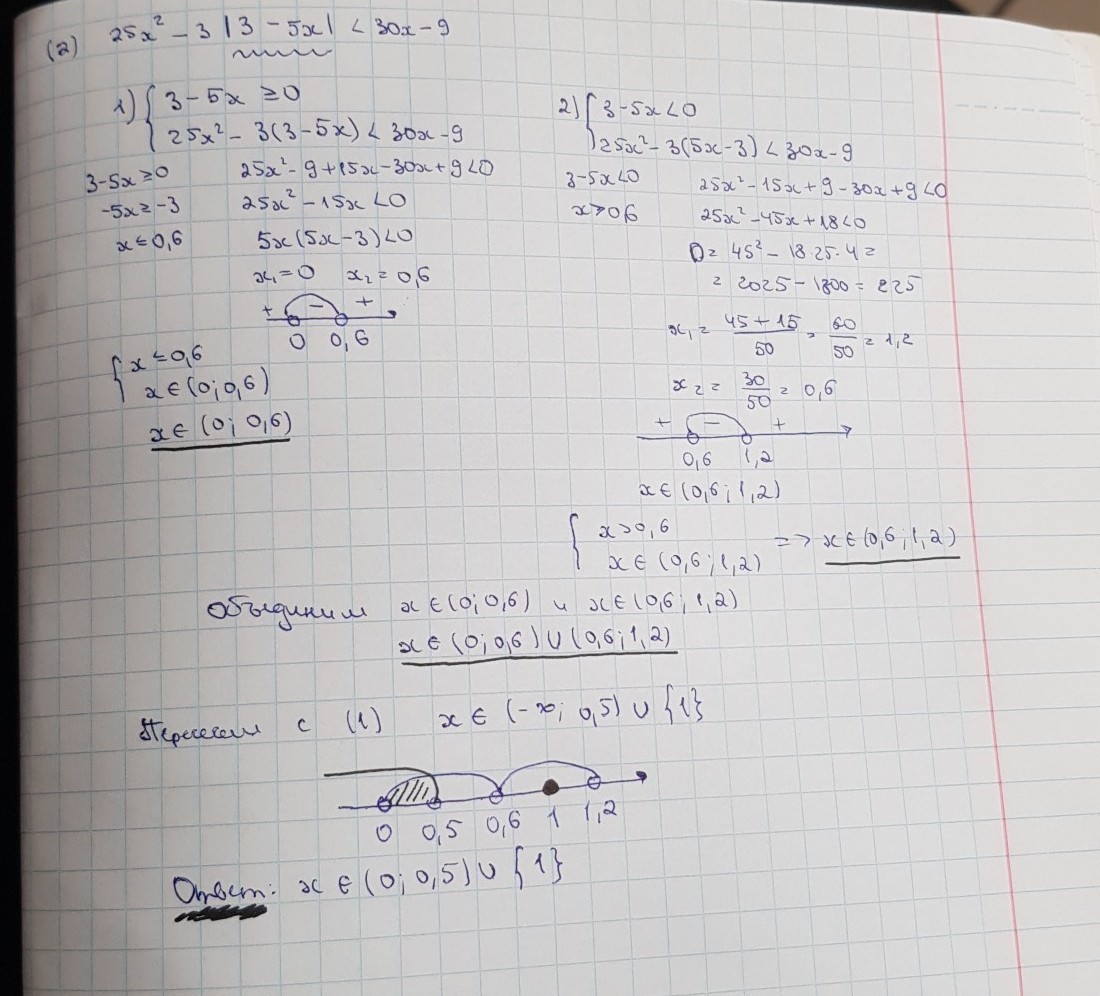 (2) 25x² - 3 |3 - 5x| < 30x - 9
1) { 3 - 5x ≥ 0
25x² - 3(3 - 5x) < 30x - 9
3 - 5x ≥ 0 25x² - 9 + 15x - 30x + 9 < 0
-5x ≥ -3 25x² - 15x < 0
x ≤ 0,6 5x(5x - 3) < 0
x₁ = 0 x₂ = 0,6
+ - +
0 0,6
{ x ≤ 0,6
x ∈ (0; 0,6)
x ∈ (0; 0,6)
2) { 3 - 5x < 0
25x² - 3(5x - 3) < 30x - 9
3 - 5x < 0 25x² - 15x + 9 - 30x + 9 < 0
x > 0,6 25x² - 45x + 18 < 0
D = 45² - 18·25·4 =
= 2025 - 1800 = 225
x₁ = (45 + 15)/50 = 60/50 = 1,2
x₂ = 30/50 = 0,6
+ - +
0,6 1,2
x ∈ (0,6; 1,2)
{ x > 0,6
x ∈ (0,6; 1,2) => x ∈ (0,6; 1,2)
Объединим x ∈ (0; 0,6) и x ∈ (0,6; 1,2)
x ∈ (0; 0,6) ∪ (0,6; 1,2)
Пересечем с (1) x ∈ (-∞; 0,5) ∪ {1}
0 0,5 0,6 1 1,2
Ответ: x ∈ (0; 0,5) ∪ {1}